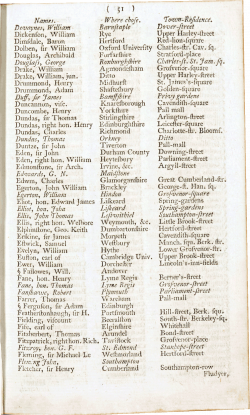 ( 31 )
Names. Where chose. Town-Residence.
Devaynes, William Barnstaple Dover-street
Dickenson, William Rye Upper Harley-street
Dimsdale, Baron Hertford Red-lion-square
Dolben, sir William Oxford University Charles-str. Cav. sq.
Douglas, Archibald Forfarshire Stratford-place
Douglas, George Roxburghshire Charles-st. St. Jam. sq.
Drake, William Agmondesham Grosvenor-square
Drake, William, jun. Ditto Upper Harley-street
Drummond, Henry Midhurst St. James's-square
Drummond, Adam Shaftesbury Golden-square
Duff, sir James Banffshire Percy-street
Duncannon, visc. Knaresborough Cavendish-square
Duncombe, Henry Yorkshire Pall mall
Dundas, sir Thomas Stirlingshire Arlington-street
Dundas, right hon. Henry Edinburghshire Leicester-square
Dundas, Charles Richmond Charlotte-str. Blooms.
Dundas, Thomas Orkney Ditto
Duntze, sir John Tiverton Pall-mall
Eden, sir John Durham County Downing-street
Eden, right hon. William Heytesbury Parliament-street
Edmonstone, sir Arch. Irvine, &c. Argyll-street
Edwards, G. N. Maidstone
Edwin, Charles Glamorganshire Great Cumberland-str.
Egerton, John William Brackley George-st. Han. sq.
Egerton, William Hindon Grosvenor-square
Eliot, hon. Edward James Liskeard Spring-gardens
Eliot, hon. John Liskeard Spring-gardens
Ellis, John Thomas Lostwithiel Southampton-street
Ellis, right hon. Welbore Weymouth, &c. Little Brook-street
Elphinstone, Geo. Keith Dumbartonshire Hertford-street
Erskine, sir James Morpeth Cavendish-square
Estwick, Samuel Westbury Manch. squ. Berk. str.
Evelyn, William Hythe Lower Grosvenor-str.
Euston, earl of Cambridge Univ. Upper Brook-street
Ewer, William Dorchester Lincoln's-inn-fields
§ Fallowes, Will. Andover
Fane, hon. Henry Lyme Regis Berner's-street
Fane, hon. Thomas Lyme Regis Grosvenor-street
Fanshawe, Robert Plymouth Parliament-street
Farrer, Thomas Wareham Pall-mall
§ Ferguson, sir Adam Edinburgh
Featherstonhaugh, sir H. Portsmouth Hill-street, Berk. squ.
Fielding, viscount Beralston South-str. Berkeley-sq.
Fife, earl of Elginshire Whitehall
Findlater Arundel Bond-street
Fitzpatrick, right hon. Rich. Tavistock Grosvenor-place
Fitzroy, hon. G. F. St. Edmond Stanhope-street
Fleming, sir Michael Le Westmorland Hertford-street
Fleming, John Southampton
Fletcher, sir Henry Cumberland Southampton-row
Fludyer,